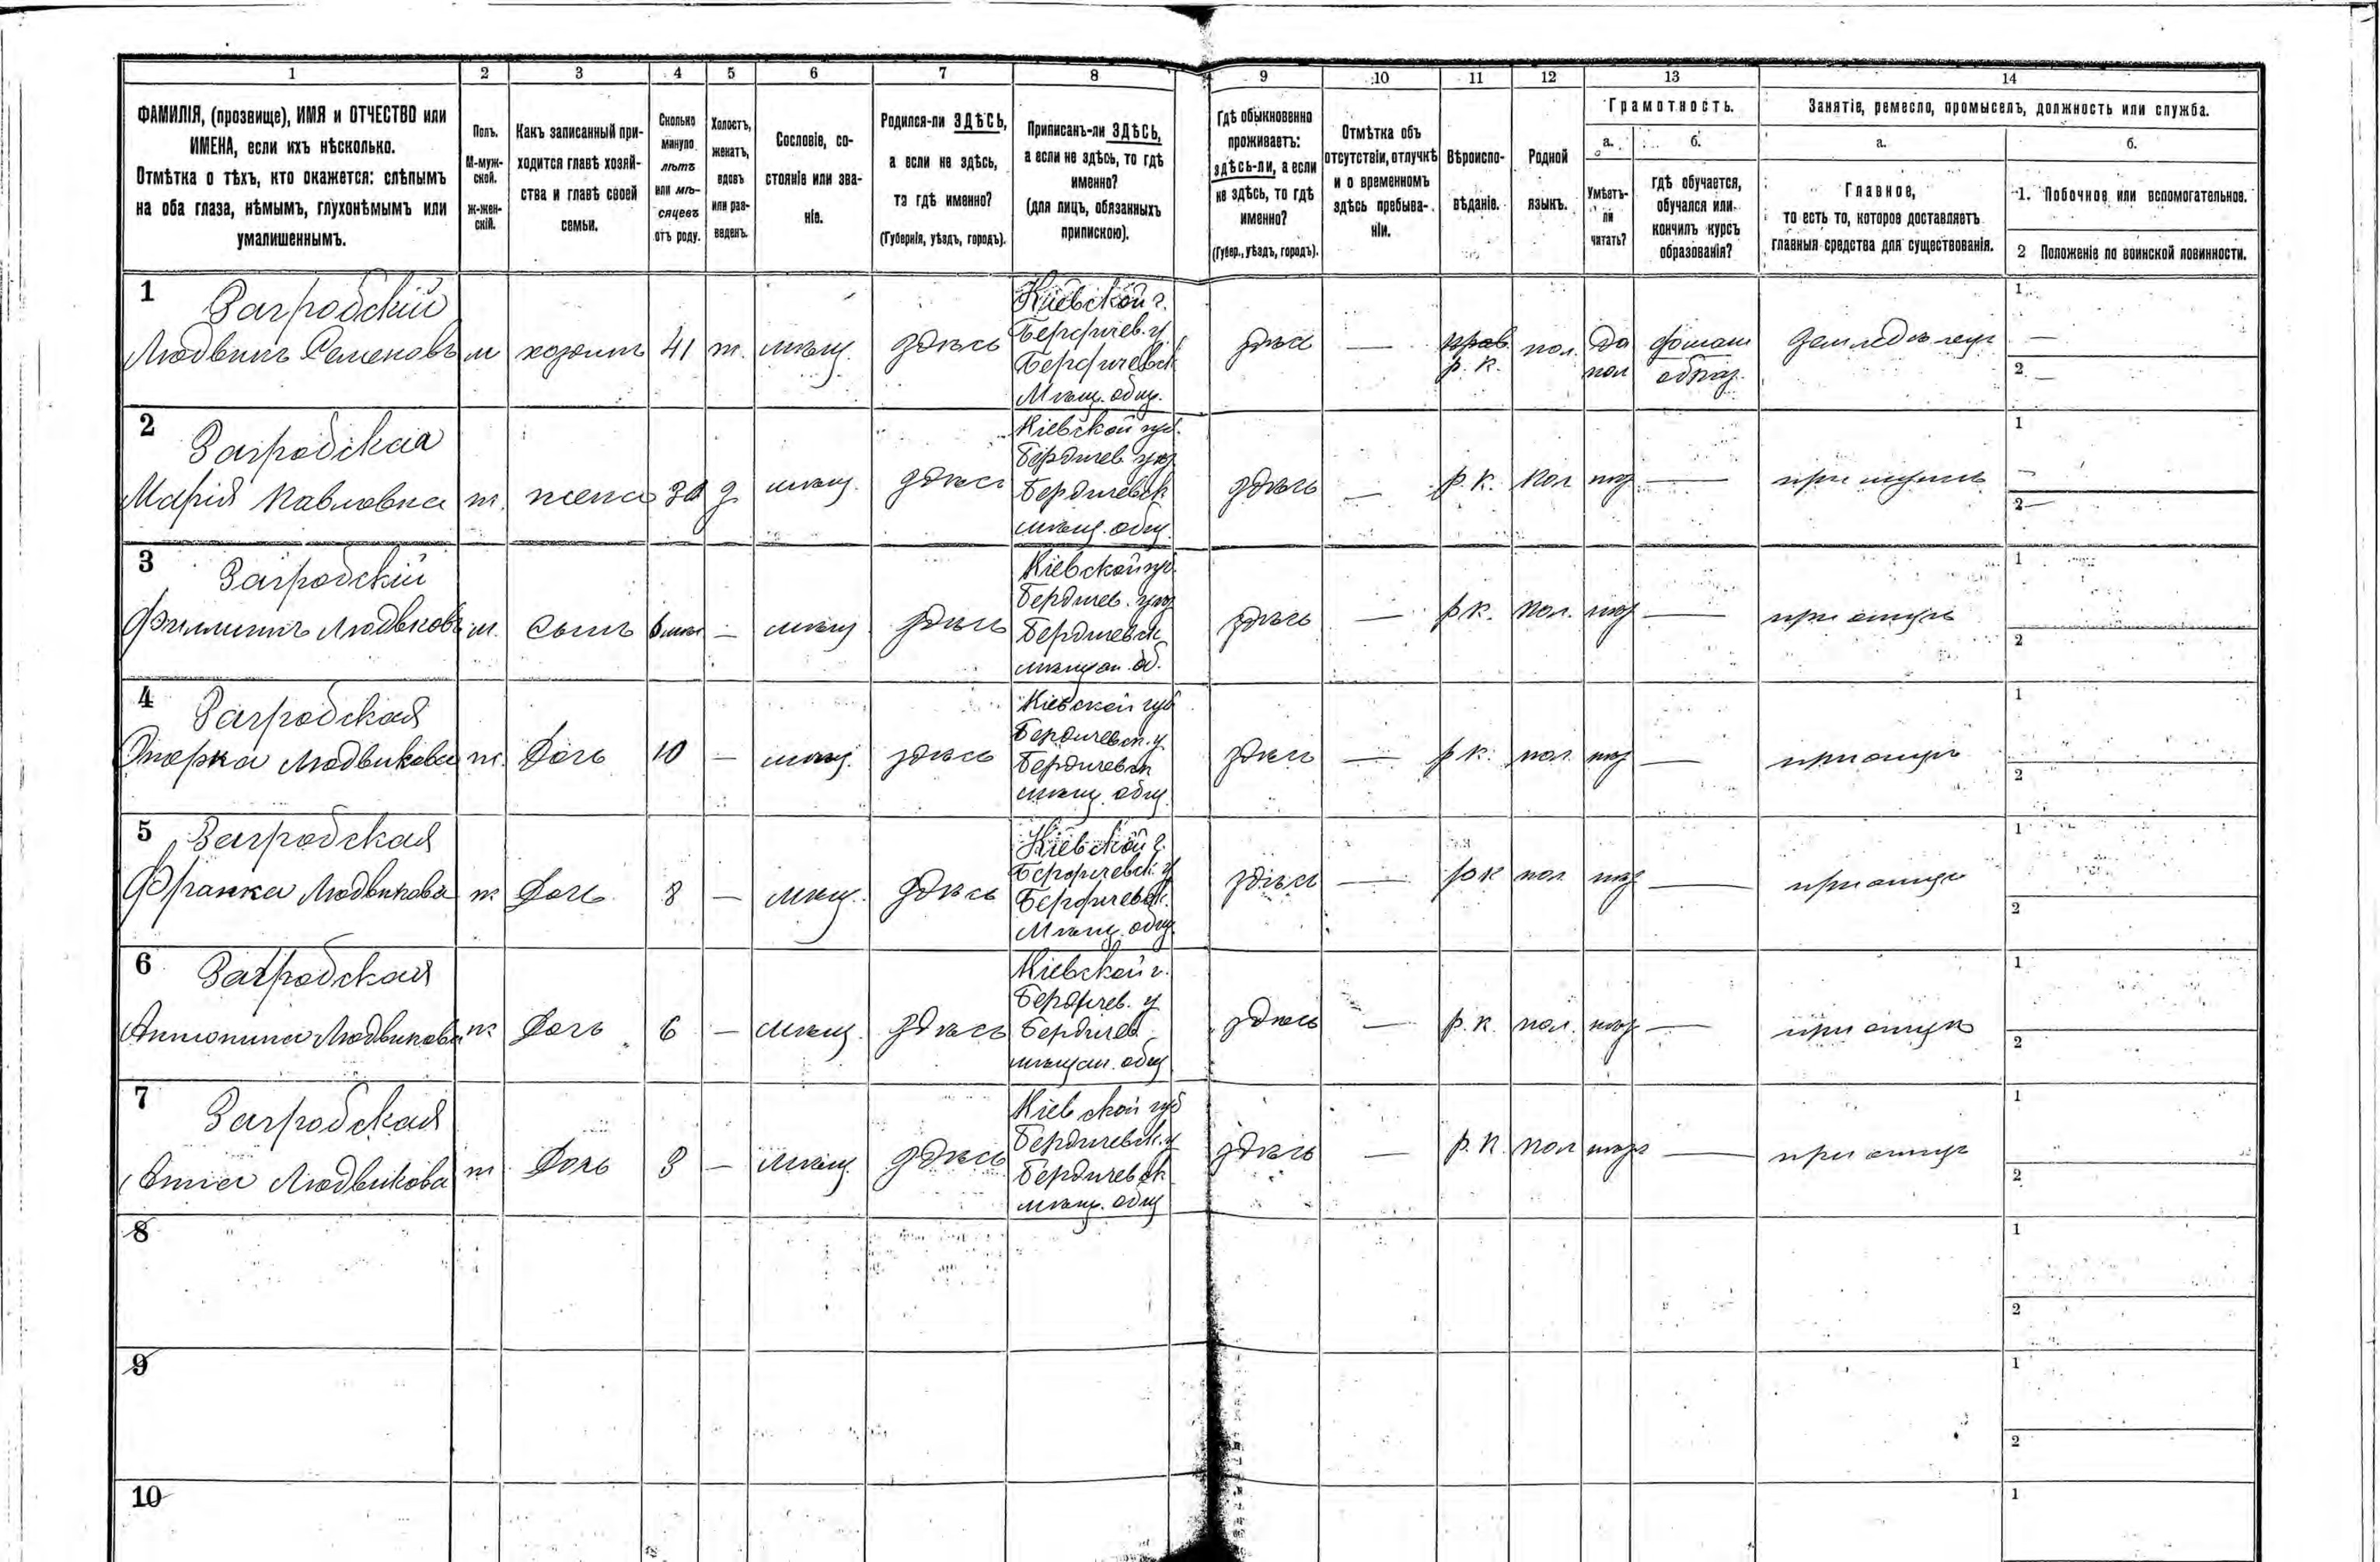 1 2 3 4 5 6 7 8 9 10 11 12 13 14
ФАМИЛІЯ, (прозвище), ИМЯ и ОТЧЕСТВО или
ИМЕНА, если ихъ нѣсколько.
Отмѣтка о тѣхъ, кто окажется: слѣпымъ
на оба глаза, нѣмымъ, глухонѣмымъ или
умалишеннымъ.
Полъ.
М-муж-
ской.
Ж-жен-
скій.
Какъ записанный при-
ходится главѣ хозяй-
ства и главѣ своей
семьи.
Сколько
минуло
лѣтъ
или мѣ-
сяцевъ
отъ роду.
Холостъ,
женатъ,
вдовъ
или раз-
веденъ.
Сословіе, со-
стояніе или зва-
ніе.
Родился-ли ЗДѢСЬ,
а если не здѣсь,
то гдѣ именно?
(Губернія, уѣздъ, городъ).
Приписанъ-ли ЗДѢСЬ,
а если не здѣсь, то гдѣ
именно?
(для лицъ, обязанныхъ
припискою).
Гдѣ обыкновенно
проживаетъ:
здѣсь-ли, а если
не здѣсь, то гдѣ
именно?
(Губер., уѣздъ, городъ).
Отмѣтка объ
отсутствіи, отлучкѣ
и о временномъ
здѣсь пребыва-
ніи.
Вѣроиспо-
вѣданіе.
Родной
языкъ.
Грамотность.
а.
Умѣетъ-
ли
читать?
б.
гдѣ обучается,
обучался или
кончилъ курсъ
образованія?
Занятіе, ремесло, промыселъ, должность или служба.
а.
Главное,
то есть то, которое доставляетъ
главныя средства для существованія.
б.
1. Побочное или вспомогательное.
2 Положеніе по воинской повинности.
1 Загродскій
Людвигъ Семеновъ м хозяинъ 41 ж. мѣщ. здѣсь
Кіевской г.
Бердичев. у
Бердичевск
Мѣщ. общ.
здѣсь — прав р. к. пол. да пол домаш образ. земледѣлец
1 —
2 —
2 Загродская
Марія Павловна ж. жена з. мѣщ. здѣсь
Кіевской губ.
Бердичев. уез
Бердичевск
мѣщ. общ.
здѣсь — р. к. пол —
1 —
2 —
3 Загродскій
Филиппъ Людвиковъ м. сынъ — мѣщ здѣсь
Кіевской губ.
Бердичев. уез
Бердичевск
мѣщан. об.
здѣсь — р к. пол. — при отцѣ
1
2
4 Загродская
Людвикова ж. дочь 10 — мѣщ. здѣсь
Кіевской губ
Бердичевск. у
Бердичевск
мѣщ. общ
здѣсь — р к. пол. — при отцѣ
1
2
5 Загродская
Франка Людвикова ж дочь 8 — мѣщ. здѣсь
Кіевской г.
Бердичевск. у
Бердичевск.
Мѣщ. общ.
здѣсь — р к пол — при отцѣ
1
2
6 Загродская
Антонина Людвикова ж дочь 6 — мѣщ. здѣсь
Кіевской г.
Бердичев. у
Бердичев
мѣщан. общ
здѣсь — р. к. пол. — при отцѣ
1
2
7 Загродская
Людвикова ж дочь 3 — мѣщ. здѣсь
Кіевской губ
Бердичевск. у
Бердичевск
мѣщ. общ
здѣсь — р. к. пол — при отцѣ
1
2
8
1
2
9
1
2
10
1